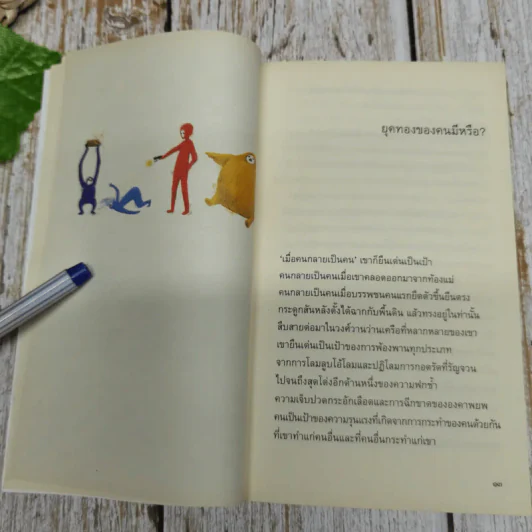 ยุคทองของคนมีหรือ?
‘เมื่อคนกลายเป็นคน’ เขาก็ยืนเด่นเป็นเป้า
คนกลายเป็นคนเมื่อเขาคลอดออกมาจากท้องแม่
คนกลายเป็นคนเมื่อบรรพชนคนแรกยืดตัวขึ้นยืนตรง
กระดูกสันหลังตั้งได้ฉากกับพื้นดิน แล้วทรงอยู่ในท่านั้น
สืบสายต่อมาในวงศ์วานว่านเครือที่หลากหลายของเขา
เขายืนเด่นเป็นเป้าของการพ้องพานทุกประเภท
จากการโลมลูบโอ้โลมและปฏิโลมการกอดรัดที่รัญจวน
ไปจนถึงสุดโต่งอีกด้านหนึ่งของความฟกช้ำ
ความเจ็บปวดกระอักเลือดและการฉีกขาดขององคาพยพ
คนเป็นเป้าของความรุนแรงที่เกิดจากการกระทำของคนด้วยกัน
ที่เขาทำแก่คนอื่นและที่คนอื่นกระทำแก่เขา